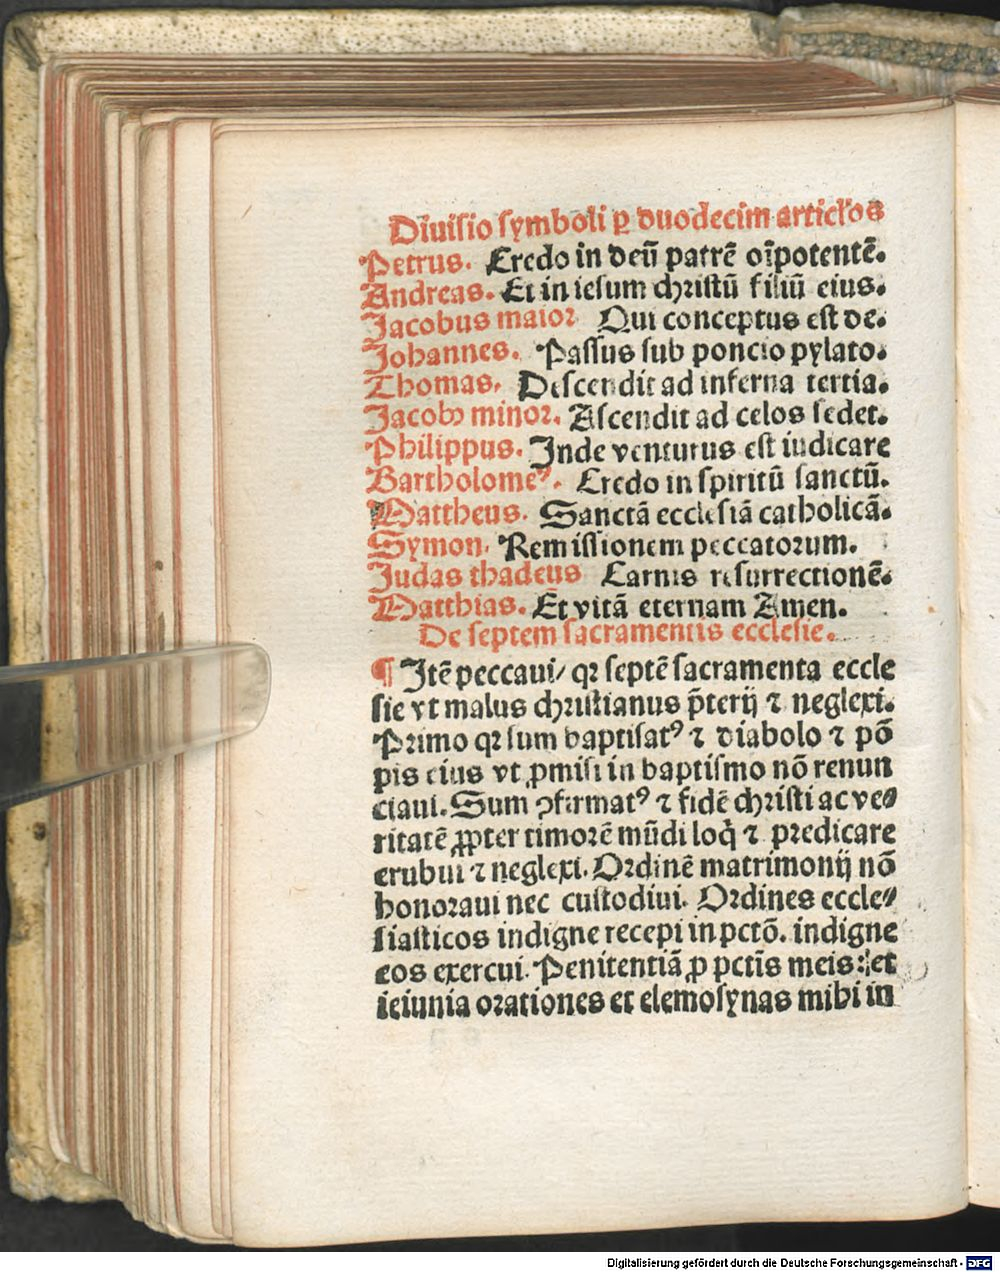 Diuisio symboli ꝑ duodecim articl'os
Petrus. Credo in deū patrē oīpotentē.
Andreas. Et in iesum christū filiū eius.
Jacobus maior Qui conceptus est de.
Johannes. Passus sub poncio pylato.
Thomas. Descendit ad inferna tertia.
Jacobꝰ minor. Ascendit ad celos sedet.
Philippus. Inde venturus est iudicare
Bartholomeꝰ. Credo in spiritū sanctū.
Mattheus. Sanctā ecclesiā catholicā.
Symon. Remissionem peccatorum.
Judas thadeus Carnis resurrectionē.
Matthias. Et vitā eternam Amen.
De septem sacramentis ecclesie.
¶ Itē peccaui/ qꝛ septē sacramenta eccle
sie vt malus christianus p̄terij ⁊ neglexi.
Primo qꝛ sum baptisatꝰ ⁊ diabolo ⁊ pō
pis eius vt ꝓmisi in baptismo nō renun
ciaui. Sum ꝯfirmatꝰ ⁊ fidē christi ac ve⸗
ritatē ꝓpter timorē mūdi loq̇ ⁊ predicare
erubui ⁊ neglexi. Ordinē matrimonij nō
honoraui nec custodiui. Ordines eccle⸗
siasticos indigne recepi in pctō. indigne
eos exercui. Penitentiā ꝓ pctīs meis: et
ieiunia orationes et elemosynas mihi in
Digitalisierung gefördert durch die Deutsche Forschungsgemeinschaft - DFG